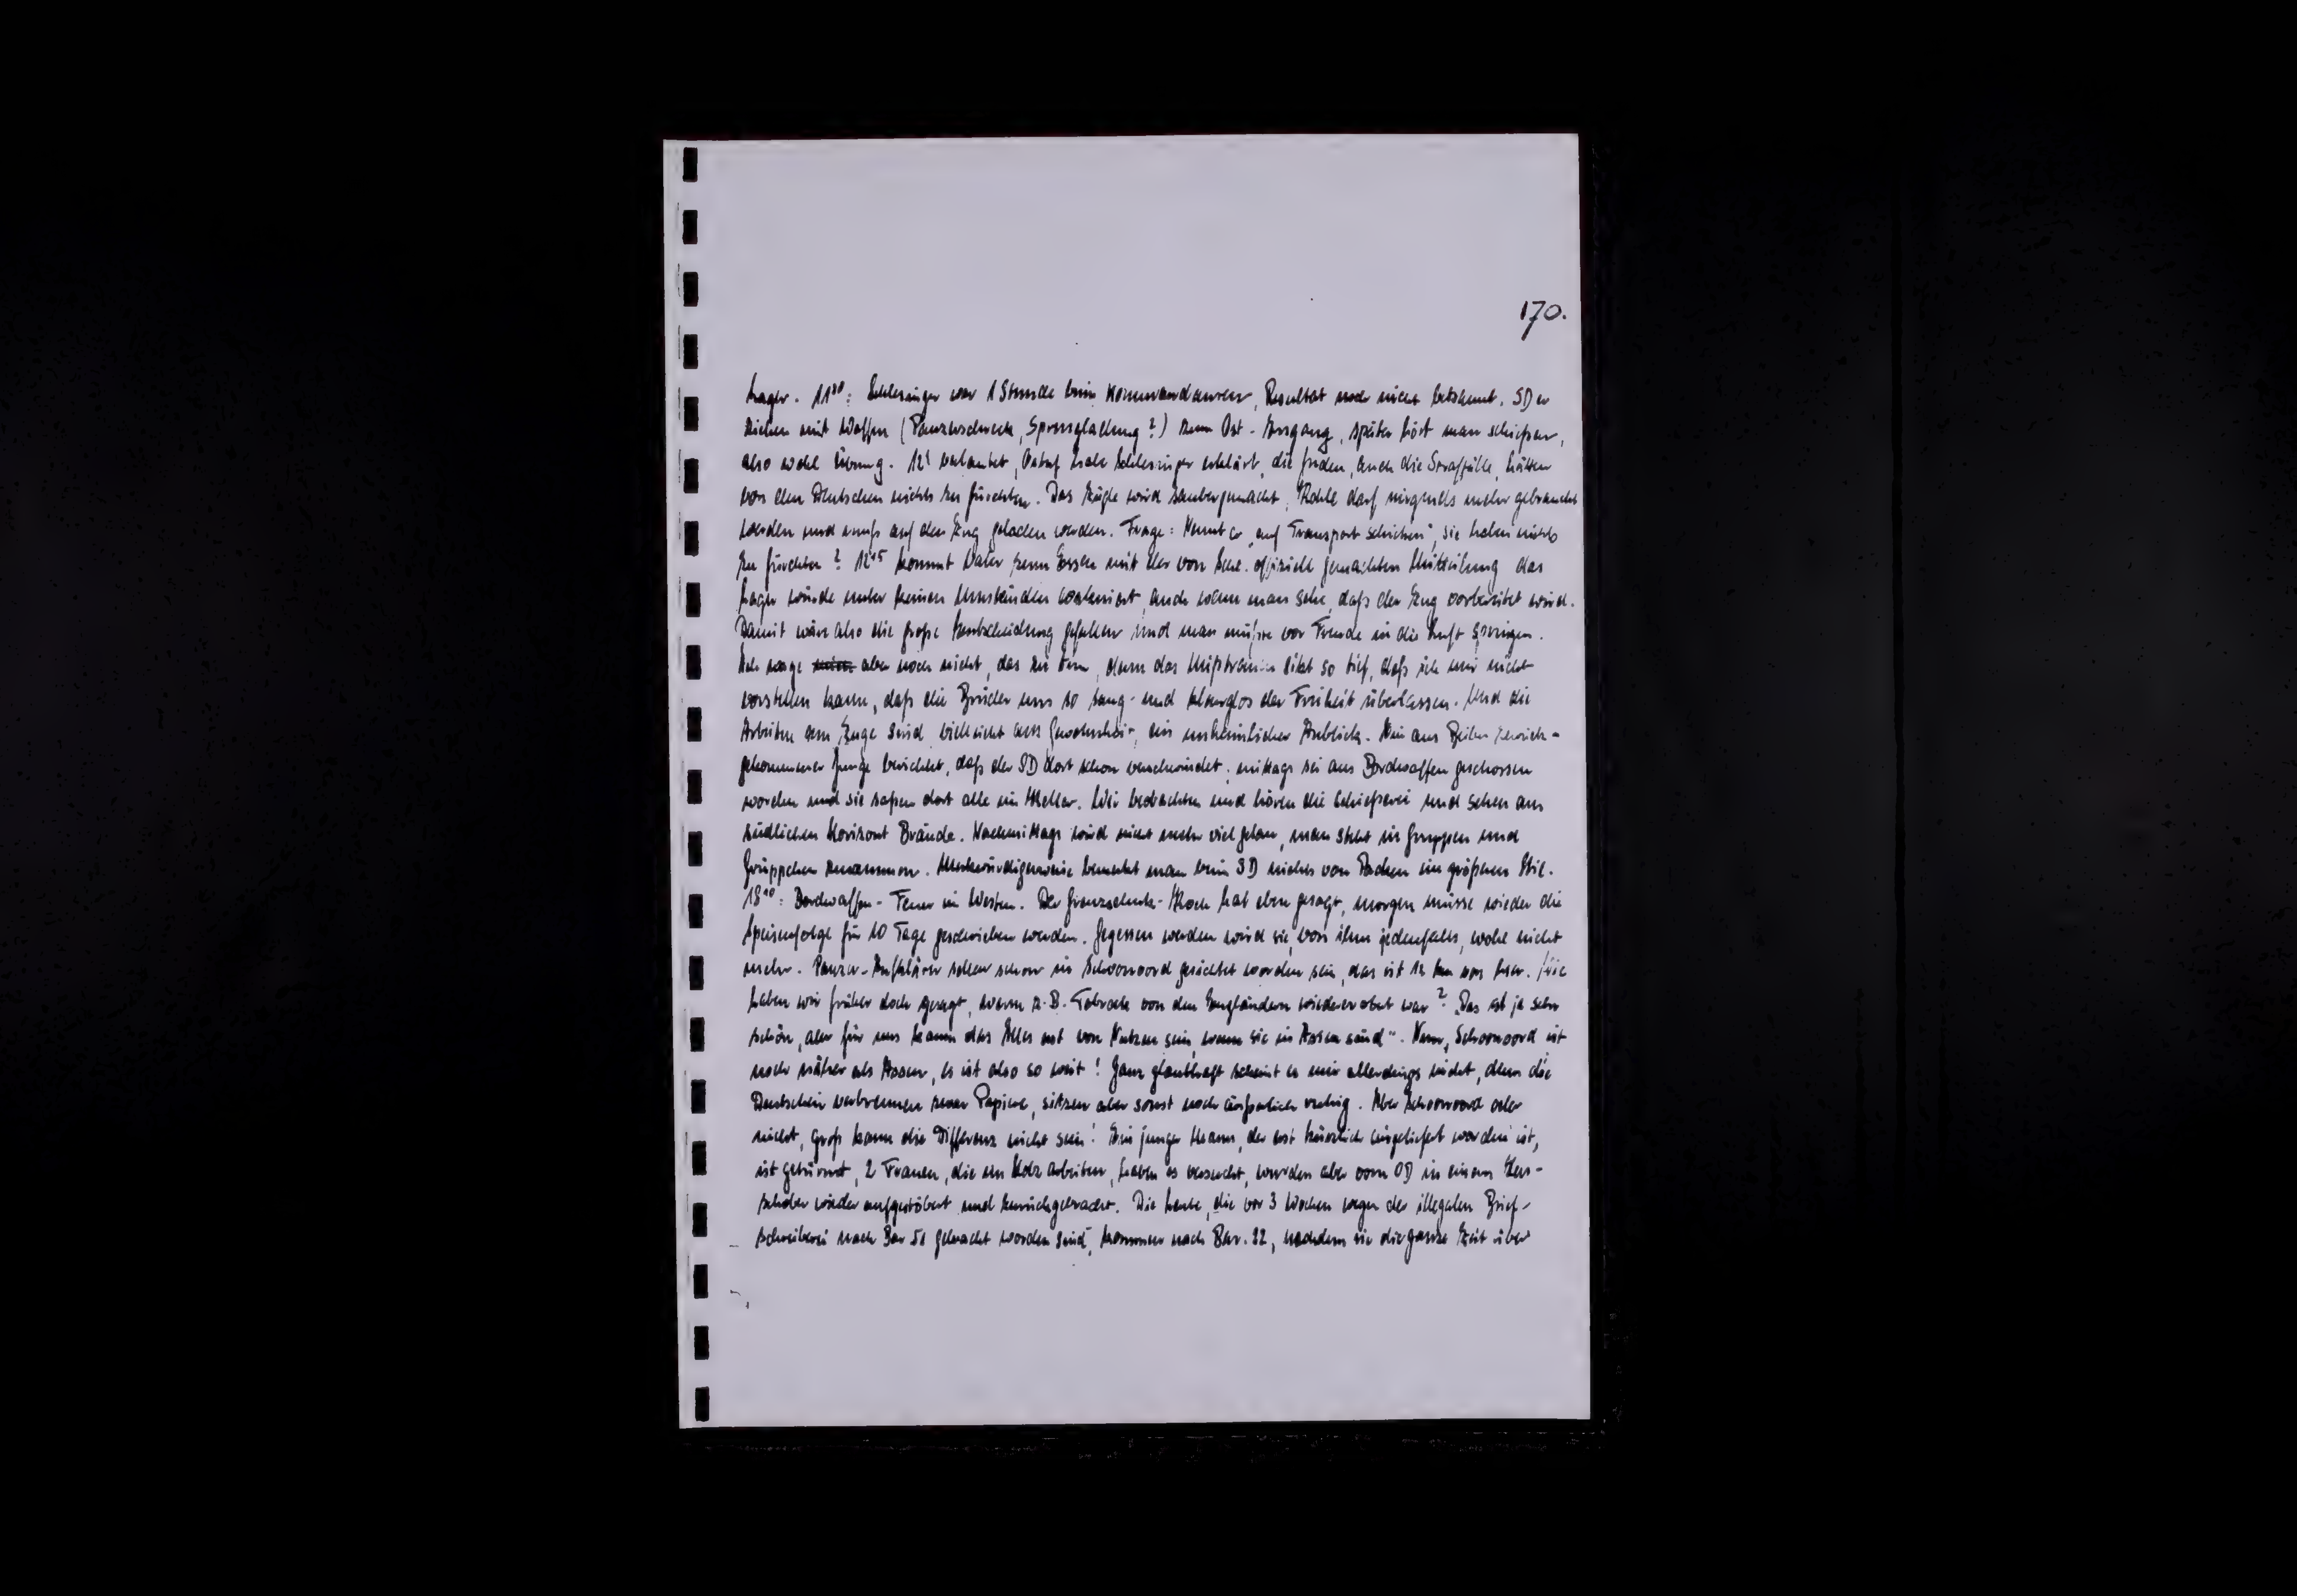 170.
Lager. 11³⁰: Schlesinger war 1 Stunde beim Kommandanten, Resultat noch nicht bekannt. SD er
ziehen mit Waffen (Panzerschreck, Sprengladung?) zum Ost-Ausgang, später hört man schießen,
also wohl Übung. 12¹ verlautet, habe Schlesinger erklärt, die Juden, auch die Straffälle, hätten
von den Deutschen nichts zu fürchten. Das Zügle wird saubergemacht, Kohle darf nirgends mehr gebraucht
werden und muß auf den Zug geladen werden. Frage: Nennt er „auf Transport schicken", sie haben nichts
zu fürchten? 12¹⁵ kommt Vater zum Essen mit der von Schl. offiziell gemachten Mitteilung das
Lager würde unter keinen Umständen evakuiert, auch wenn man sehe, daß der Zug vorbereitet wird.
Damit wäre also die große Entscheidung gefallen und man müßte vor Freude in die Luft springen.
Ich wage aber noch nicht, das zu tun, denn das Mißtrauen sitzt so tief, daß ich mir nicht
vorstellen kann, daß die Brüder uns so sang- und klanglos der Freiheit überlassen. Und die
Arbeiten am Zuge sind, vielleicht aus Gewohnheit, ein unheimlicher Anblick. Ein aus Beilen zurück-
gekommener Junge berichtet, daß der SD dort schon verschwindet; mittags sei aus Bordwaffen geschossen
worden und sie saßen dort alle im Keller. Wir beobachten und hören die Schießerei und sehen am
südlichen Horizont Brände. Nachmittags wird nicht mehr viel getan, man steht in Gruppen und
Grüppchen zusammen. Merkwürdigerweise bemerkt man beim SD nichts von Packen im größeren Stil.
18¹⁰: Bordwaffen-Feuer im Westen. Der Grenzschutz-Koch hat eben gesagt, morgen müsse wieder die
Speisenfolge für 10 Tage geschrieben werden. Gegessen werden wird sie, von ihm jedenfalls, wohl nicht
mehr. Panzer-Aufklärer sollen schon in Schoonoord gesichtet worden sein, das ist 12 km von hier. Wie
haben wir früher doch gesagt, wenn z.B. Tobruk von den Engländern wiedererobert war? „Das ist ja sehr
schön, aber für uns kann das Alles erst von Nutzen sein, wenn sie in Assen sind". Nun, Schoonoord ist
noch näher als Assen, es ist also so weit! Ganz glaubhaft scheint es mir allerdings nicht, denn die
Deutschen verbrennen zwar Papiere, sitzen aber sonst noch äußerlich ruhig. Aber Schoonoord oder
nicht, groß kann die Differenz nicht sein! Ein junger Mann, der erst kürzlich eingeliefert worden ist,
ist getürmt, 2 Frauen, die im Holz arbeiten, haben es versucht, wurden aber vom OD in einem Heu-
schober wieder aufgestöbert und zurückgebracht. Die Leute, die vor 3 Wochen wegen der illegalen Brief-
schreiberei nach Bar 51 gebracht worden sind, kommen nach Bar. 22, nachdem sie die ganze Zeit über